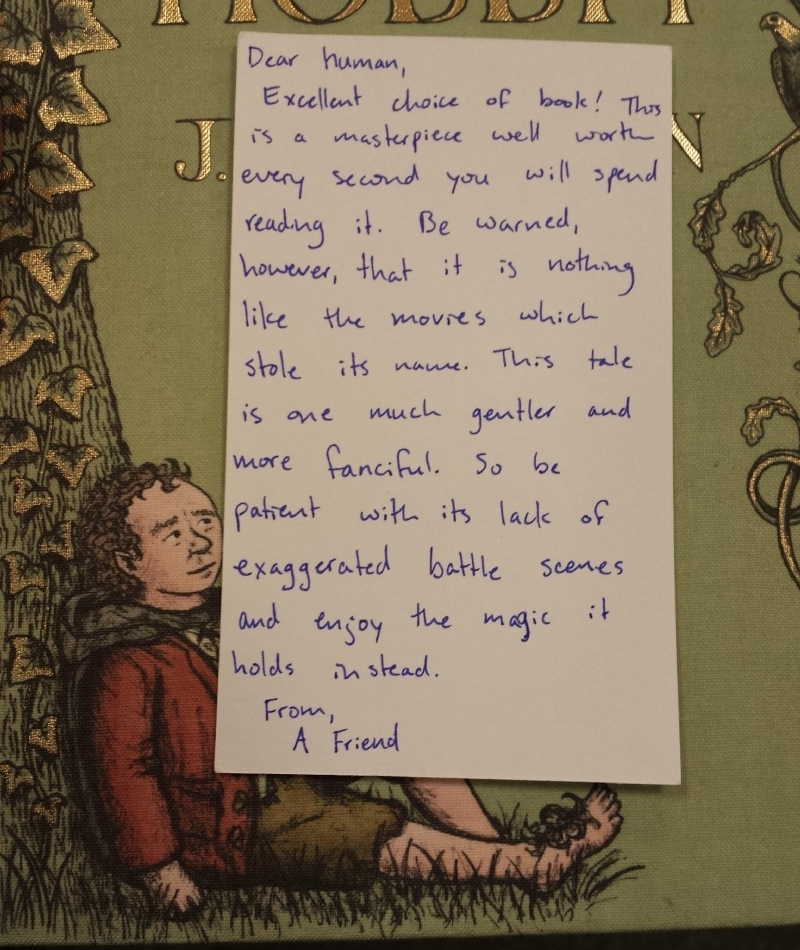 HOBBIT
J.
N
Dear human,
Excellent choice of book! This
is a masterpiece well worth
every second you will spend
reading it. Be warned,
however, that it is nothing
like the movies which
stole its name. This tale
is one much gentler and
more fanciful. So be
patient with its lack of
exaggerated battle scenes
and enjoy the magic it
holds instead.
From,
A Friend